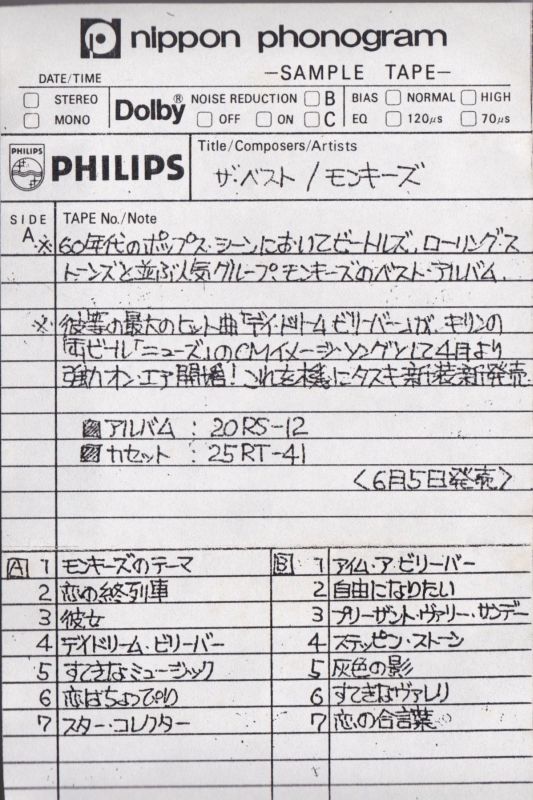 nippon phonogram
DATE/TIME
—SAMPLE TAPE—
STEREO
MONO
Dolby® NOISE REDUCTION
OFF
ON
B
C
BIAS NORMAL HIGH
EQ 120μs 70μs
PHILIPS
PHILIPS
Title/Composers/Artists
ザ・ベスト / モンキーズ
SIDE
TAPE No./Note
A
※ 60年代のポップス・シーンにおいてビートルズ、ローリング・ス
トーンズと並ぶ人気グループ、モンキーズのベスト・アルバム
※ 彼等の最大のヒット曲「デイ・ドリームビリーバー」が、キリンの
「缶ビール「ニューズ」のCMイメージ・ソングとして4月より
強力オン・エア開始! これを機にタスキ新装新発売
アルバム : 20RS-12
カセット : 25RT-41
〈6月5日発売〉
A
1 モンキーズのテーマ
2 恋の終列車
3 彼女
4 デイドリーム・ビリーバー
5 すてきなミュージック
6 恋はちょっぴり
7 スター・コレクター
B
1 アイム・ア・ビリーバー
2 自由になりたい
3 プリーザント・ヴァリー・サンデー
4 ステッピン・ストーン
5 灰色の影
6 すてきなヴァレリ
7 恋の合言葉